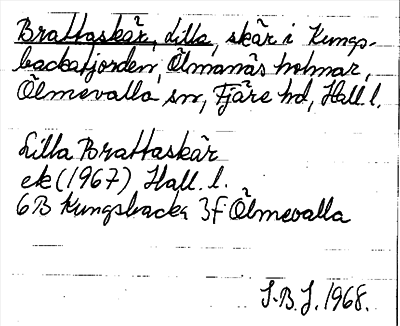 Brattaskär, Lilla, skär i Kungs-
backafjorden, Ölmanäs holmar,
Ölmevalla sn, Fjäre hd, Hall. l.
Lilla Brattaskär
ek (1967) Hall. l.
6B Kungsbacka 3f Ölmevalla
S.B.J. 1968.